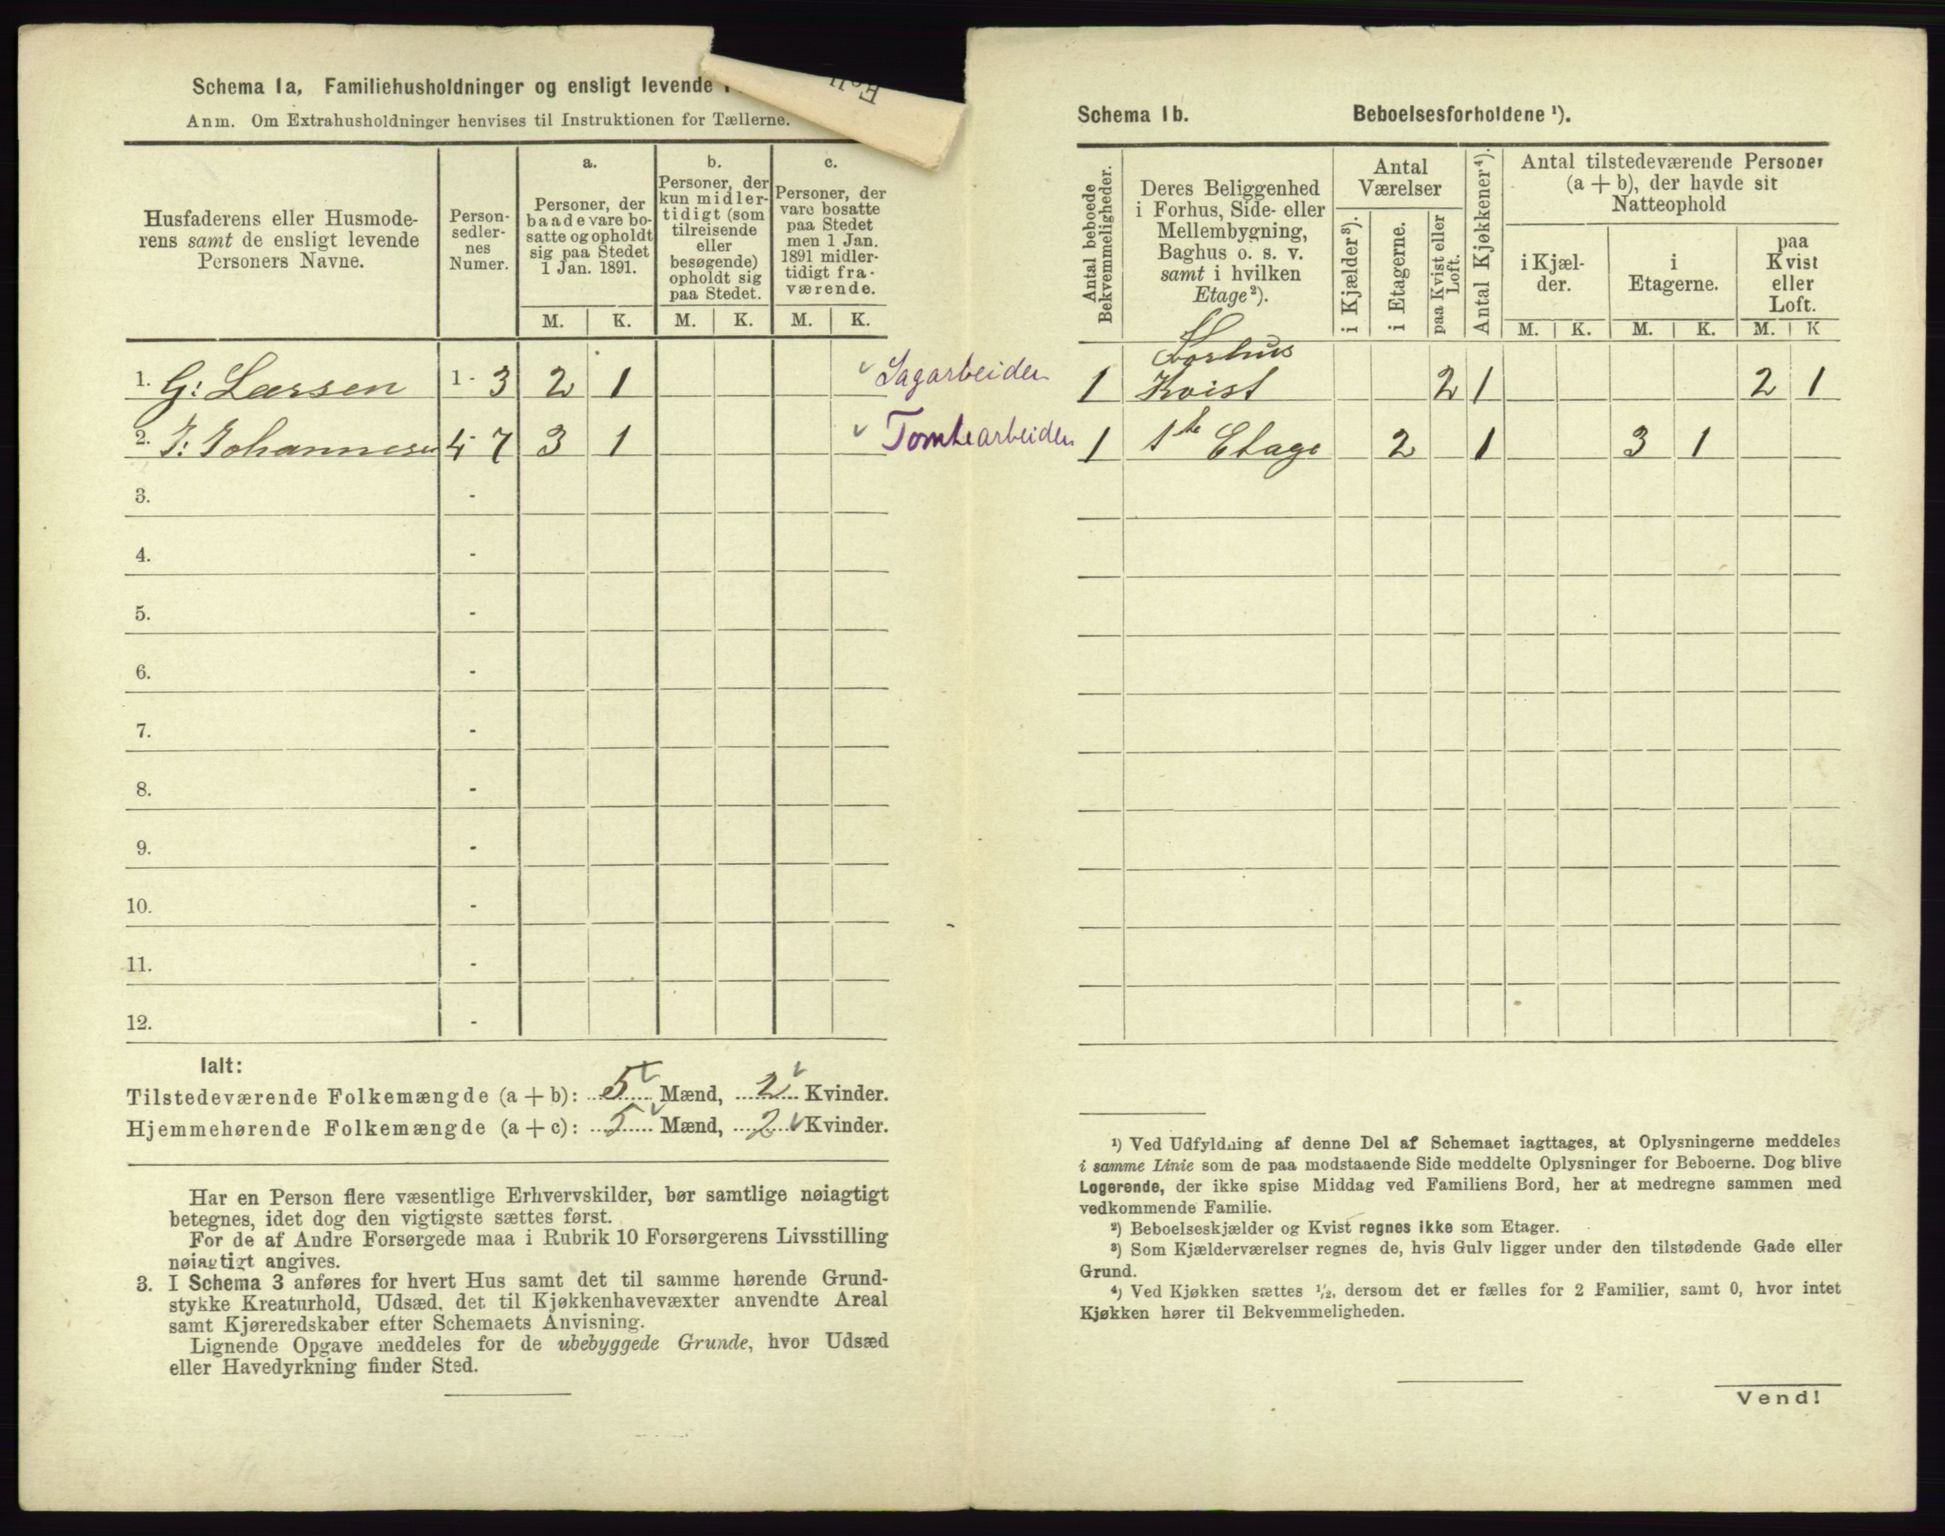 Schema 1a, Familiehusholdninger og ensligt levende
Anm. Om Extrahusholdninger henvises til Instruktionen for Tællerne.
Husfaderens eller Husmode-
rens samt de ensligt levende
Personers Navne.
Person-
sedler-
nes
Numer.
a.
Personer, der
baade vare bo-
satte og opholdt
sig paa Stedet
1 Jan. 1891.
b.
Personer, der
kun midler-
tidigt (som
tilreisende
eller
besøgende)
opholdt sig
paa Stedet.
c.
Personer, der
vare bosatte
paa Stedet
men 1 Jan.
1891 midler-
tidigt fra-
værende.
M. K. M. K. M. K.
1. G: Larsen 1 - 3 2 1 Sagarbeider
2. J: Johannesen 4 - 7 3 1 Tomtearbeider
3. -
4. -
5. -
6. -
7. -
8. -
9. -
10. -
11. -
12. -
Ialt:
Tilstedeværende Folkemængde (a + b): 5 Mænd, 2 Kvinder.
Hjemmehørende Folkemængde (a + c): 5 Mænd, 2 Kvinder.
Har en Person flere væsentlige Erhvervskilder, bør samtlige nøiagtigt
betegnes, idet dog den vigtigste sættes først.
For de af Andre Forsørgede maa i Rubrik 10 Forsørgerens Livsstilling
nøiagtigt angives.
3. I Schema 3 anføres for hvert Hus samt det til samme hørende Grund-
stykke Kreaturhold, Udsæd, det til Kjøkkenhavevæxter anvendte Areal
samt Kjøreredskaber efter Schemaets Anvisning.
Lignende Opgave meddeles for de ubebyggede Grunde, hvor Udsæd
eller Havedyrkning finder Sted.
Schema 1b. Beboelsesforholdene ¹).
Antal beboede
Bekvemmeligheder.
Deres Beliggenhed
i Forhus, Side- eller
Mellembygning,
Baghus o. s. v.
samt i hvilken
Etage²).
Antal
Værelser
i Kjælder³).
i Etagerne.
paa Kvist eller
Loft.
Antal Kjøkkener⁴).
Antal tilstedeværende Personer
(a + b), der havde sit
Natteophold
i Kjæl-
der.
i
Etagerne.
paa
Kvist
eller
Loft.
M. K. M. K. M. K
Forhus
1 Kvist 2 1 2 1
1 1te Etage 2 1 3 1
¹) Ved Udfyldning af denne Del af Schemaet iagttages, at Oplysningerne meddeles
i samme Linie som de paa modstaaende Side meddelte Oplysninger for Beboerne. Dog blive
Logerende, der ikke spise Middag ved Familiens Bord, her at medregne sammen med
vedkommende Familie.
²) Beboelseskjælder og Kvist regnes ikke som Etager.
³) Som Kjælderværelser regnes de, hvis Gulv ligger under den tilstødende Gade eller
Grund.
⁴) Ved Kjøkken sættes ½, dersom det er fælles for 2 Familier, samt 0, hvor intet
Kjøkken hører til Bekvemmeligheden.
Vend!